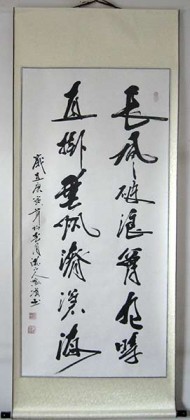 長風破浪會有時
直掛雲帆濟滄海
歲在庚寅年